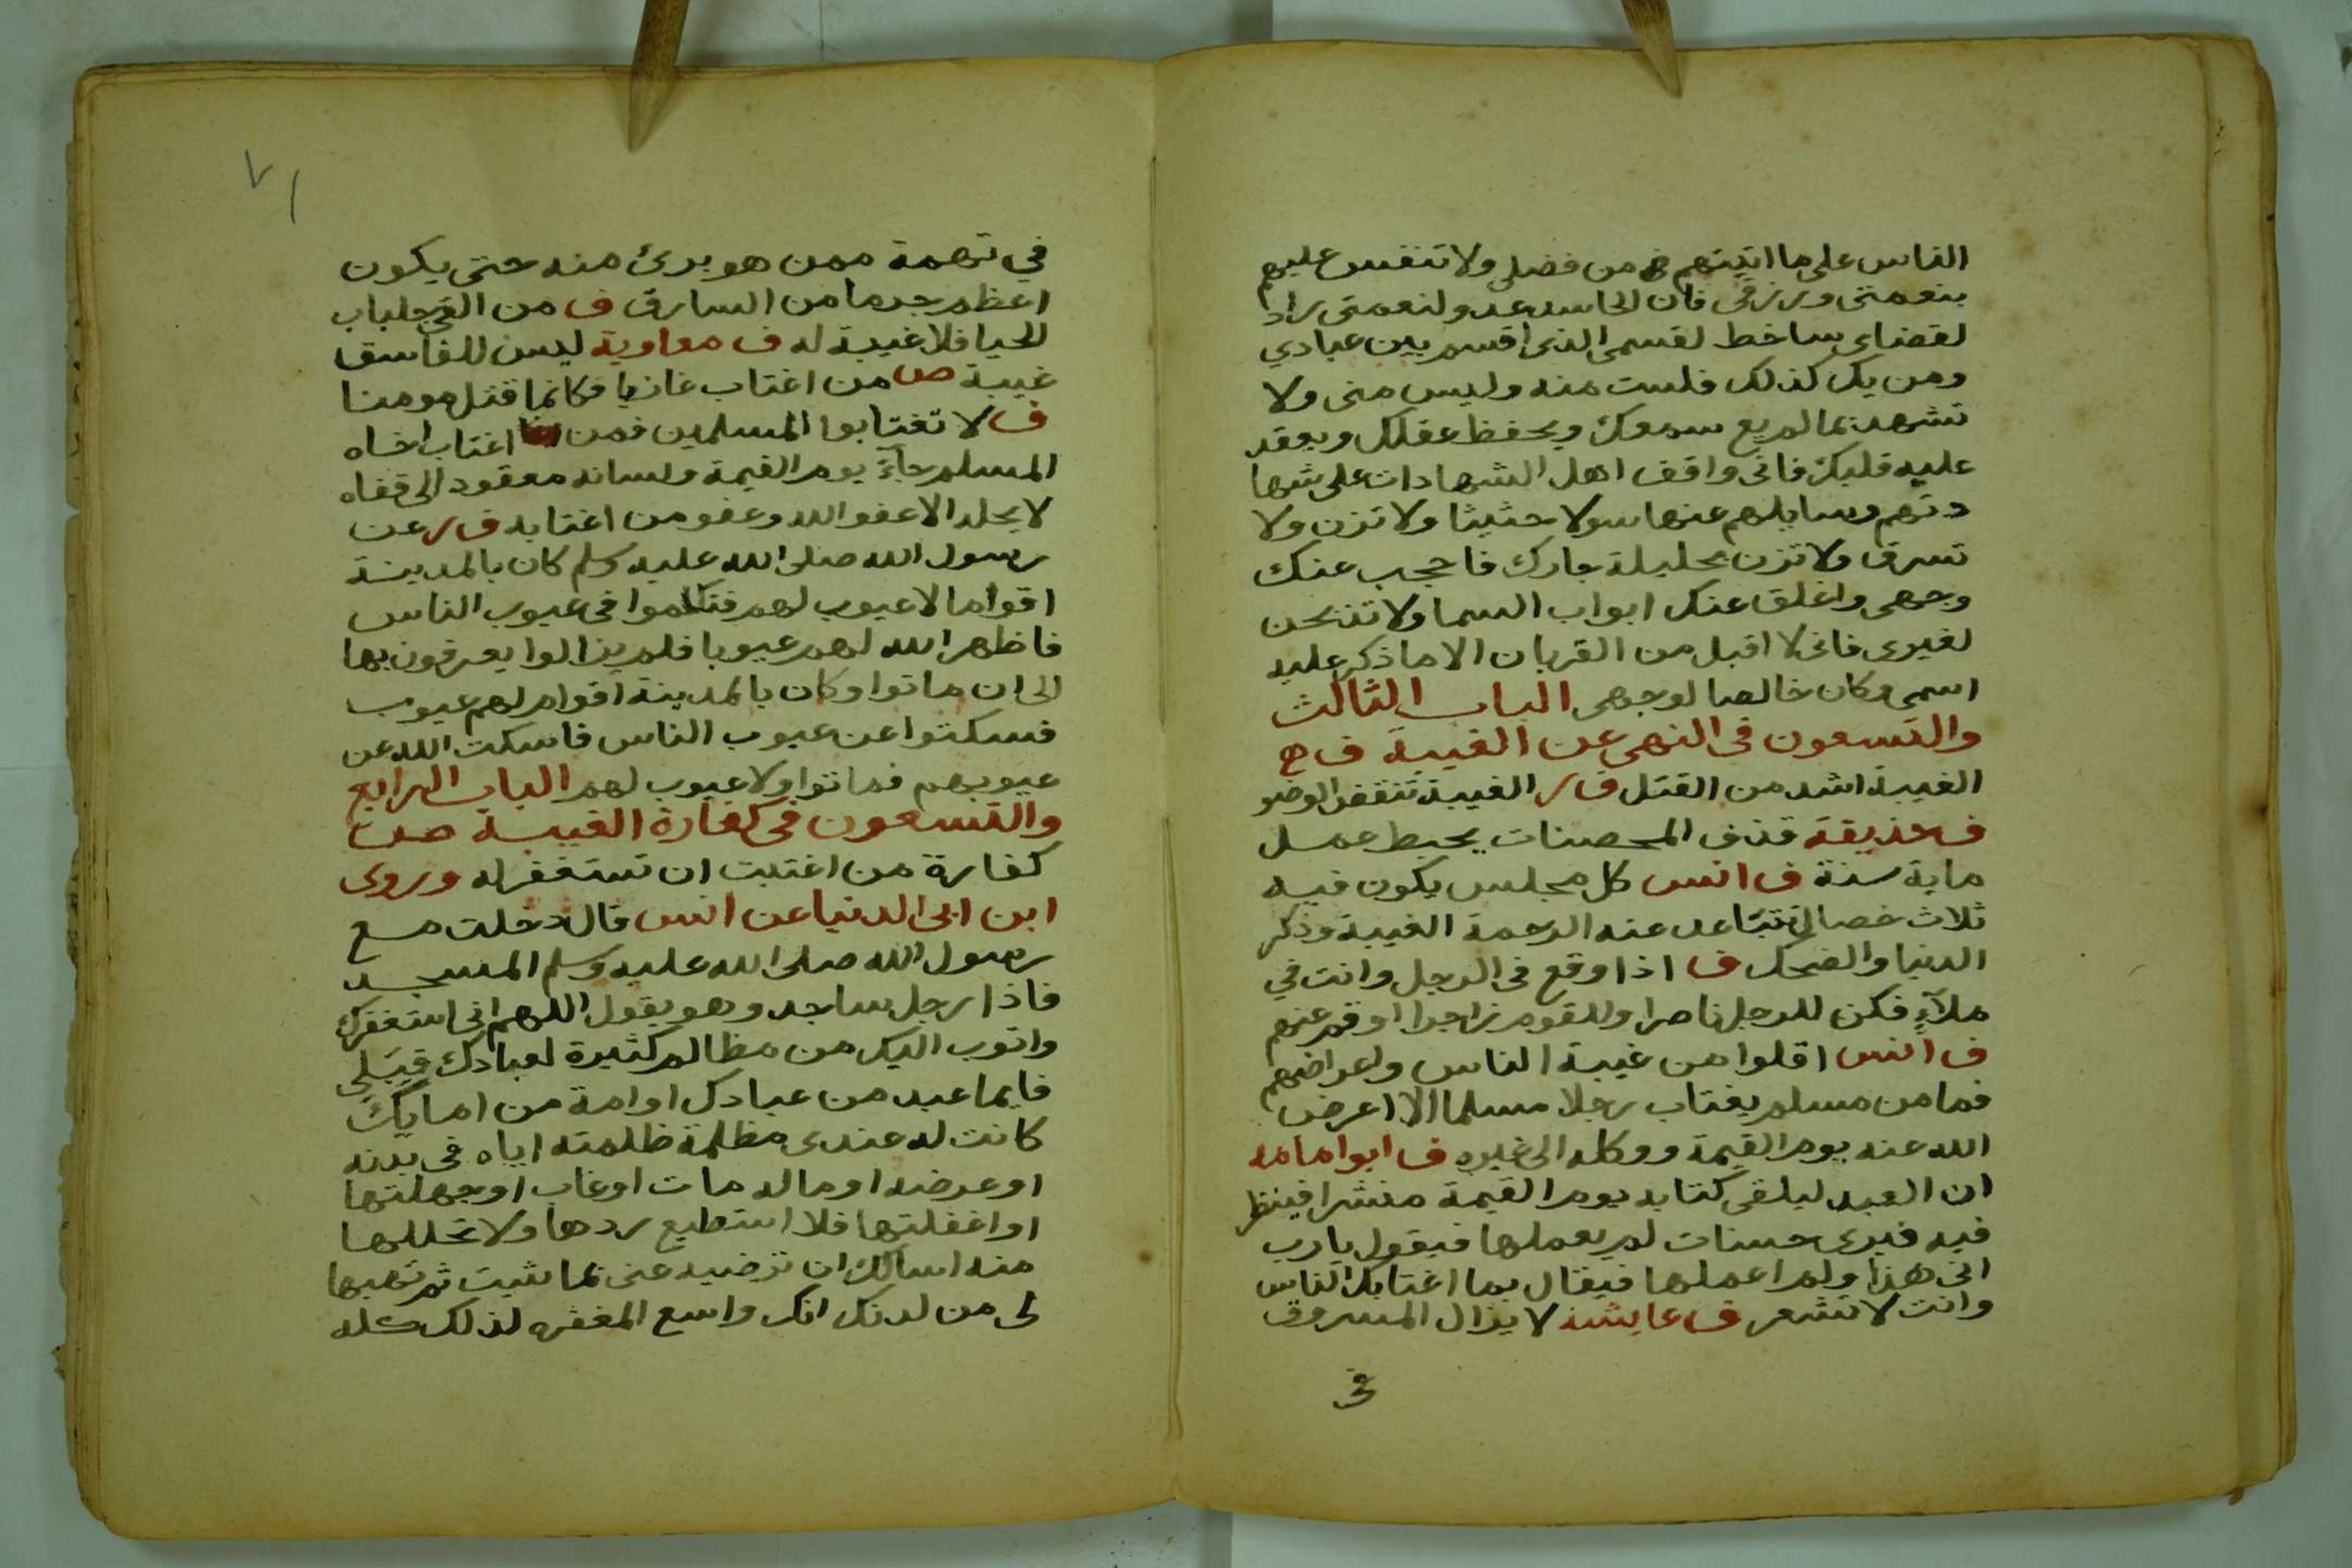 الناس على ما اتيتهم من فضلي ولا تنفس عليهم
بنعمتي ورزقي فان الحاسد عدو لنعمتي راد
لقضاي ساخط لقسمي الذي اقسم بين عبادي
ومن يك كذلك فلست منه وليس مني ولا
تشهد بما لم يع سمعك ويحفظ عقلك ويعقد
عليه قلبك فاني واقف اهل الشهادات على شها
دتهم وسايلهم عنها سولا حثيثا ولا تزن ولا
تسرق ولا تزن بحليلة جارك فاحجب عنك
وجهي واغلق عنك ابواب السما ولا تذبحن
لغيري فاني لا اقبل من القربان الا ما ذكر عليه
اسمي وكان خالصا لوجهي الباب الثالث
والتسعون في النهي عن الغيبة ف ج
الغيبة اشد من القتل ف ر الغيبة تنقض الوضو
ف حذيقة قذف المحصنات يحبط عمل
ماية سنة ف انس كل مجلس يكون فيه
ثلاث خصال تتباعد عنه الرحمة الغيبة وذكر
الدنيا والضحك ف اذا وقع في الرجل وانت في
ملآء فكن للرجل ناصرا وللقوم زاجرا او قم عنهم
ف انس اقلوا من غيبة الناس واعراضهم
فما من مسلم يغتاب رجلا مسلما الا اعرض
الله عنه يوم القيمة ووكله الى غيره ف ابوا مامه
ان العبد ليلقى كتابه يوم القيمة منشرا فينظر
فيه فيرى حسنات لم يعملها فيقول يا رب
اني هذا ولم اعملها فيقال بما اغتابك الناس
وانت لا تشعر ف عايشه لا يزال المسروق
في
٧١
في تهمة ممن هو برئ منه حتى يكون
اعظم جرما من السارق ف من القي جلباب
الحيا فلا غيبة له ف معاوية ليس للفاسق
غيبة ص من اغتاب غازيا فكانما قتل مومنا
ف لا تغتابوا المسلمين فمن اغتاب اخاه
المسلم جآء يوم القيمة ولسانه معقود الى قفاه
لا يحله الا عفو الله وعفو من اغتابه ف ر عن
رسول الله صلى الله عليه وسلم كان بالمدينة
اقواما لا عيوب لهم فتكلموا في عيوب الناس
فاظهر الله لهم عيوبا فلم يزالوا يعرفون بها
الى ان ماتوا وكان بالمدينة اقوام لهم عيوب
فسكتوا عن عيوب الناس فاسكت الله عن
عيوبهم فماتوا ولا عيوب لهم الباب الرابع
والتسعون في كفارة الغيبة ص
كفارة من اغتبت ان تستغفر له وروى
ابن ابي الدنيا عن انس قال دخلت مع
رسول الله صلى الله عليه وسلم المسجد
فاذا رجل ساجد وهو يقول اللهم اني استغفرك
واتوب اليك من مظالم كثيرة لعبادك قبلي
فايما عبد من عبادك او امة من امايك
كانت له عندى مظلمة ظلمته اياه في بدنه
او عرضه او ماله مات او غاب او جهلتها
او اغفلتها فلا استطيع ردها ولا تحللها
منه اسالك ان ترضيه عني بما شيت ثم تهبها
لى من لدنك انك واسع المغفره لذلك كله